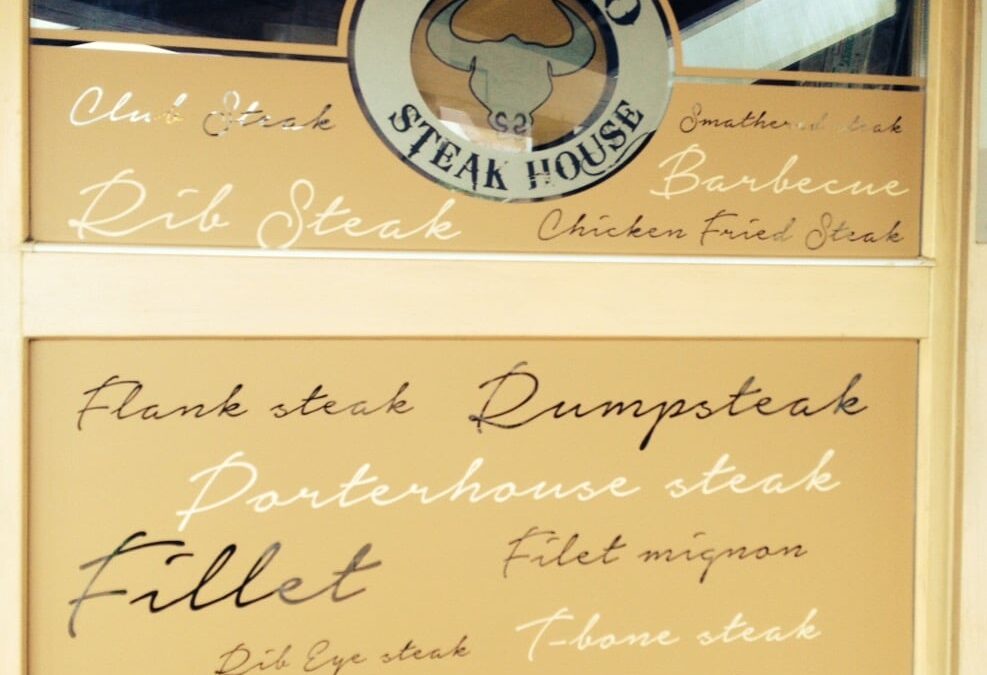 STEAK HOUSE
Club Steak
Smathered steak
Rib Steak
Barbecue
Chicken Fried Steak
Flank steak
Rumpsteak
Porterhouse steak
Fillet
Filet mignon
T-bone steak
Rib Eye steak